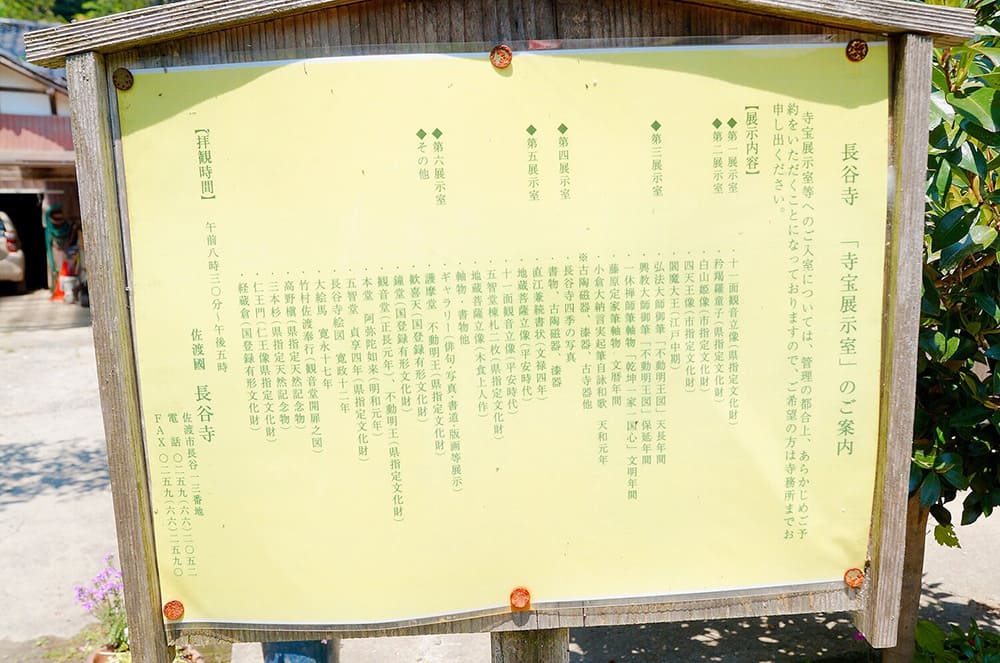 長谷寺 「寺宝展示室」のご案内
寺宝展示室等へのご入室については、管理の都合上、あらかじめご予
約をいただくことになっておりますので、ご希望の方は寺務所までお
申し出ください。
【展示内容】
◆第一展示室 ・十一面観音立像(県指定文化財)
◆第二展示室 ・矜羯羅童子(県指定文化財)
・白山姫像(市指定文化財)
・四天王像(市指定文化財)
・閻魔大王(江戸中期)
◆第三展示室 ・弘法大師御筆「不動明王図」天長年間
・興教大師御筆「不動明王図」保延年間
・一休禅師筆軸物「乾坤一家一国心」文明年間
・藤原定家筆軸物 文暦年間
・小倉大納言実起筆自詠和歌 天和元年
※古陶磁器、漆器、古寺器他
◆第四展示室 ・長谷寺四季の写真
・書物、古陶磁器、漆器
◆第五展示室 ・直江兼続書状(文禄四年)
・地蔵菩薩立像(平安時代)
・十一面観音立像(平安時代)
・五智堂棟札二枚(県指定文化財)
・地蔵菩薩立像(木食上人作)
・軸物・書物他
◆第六展示室 ・ギャラリー(俳句・写真・書道・版画等展示)
◆その他 ・護摩堂 不動明王(県指定文化財)
・歓喜天(国登録有形文化財)
・鐘堂(国登録有形文化財)
・観音堂(正長元年)、不動明王(県指定文化財)
・本堂 阿弥陀如来(明和元年)
・五智堂 貞享四年(県指定文化財)
・長谷寺絵図 寛政十二年
・大絵馬 寛永十七年
・竹村佐渡奉行(観音堂開扉之図)
・高野槇(県指定天然記念物)
・三本杉(県指定天然記念物)
・仁王門(仁王像県指定文化財)
・経蔵倉(国登録有形文化財)
【拝観時間】 午前八時三〇分〜午後五時
佐渡國 長谷寺
佐渡市長谷一三番地
電 話 〇二五九(六六)二〇五二
FAX 〇二五九(六六)二五九〇